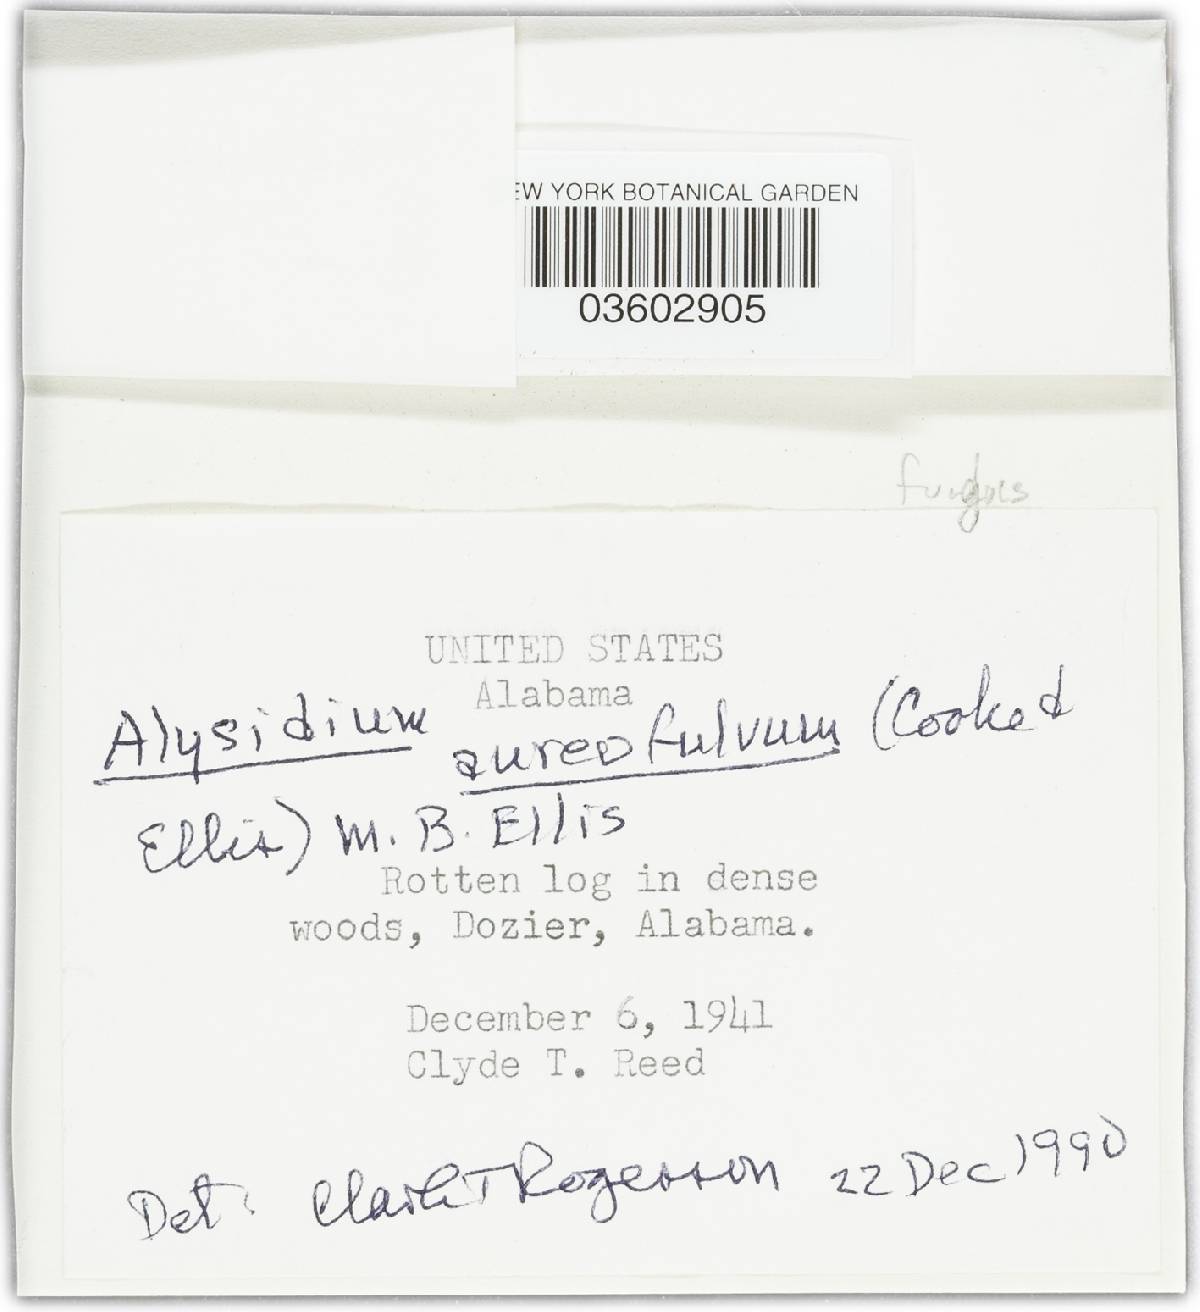 EW YORK BOTANICAL GARDEN
03602905
fungus
UNITED STATES
Alabama
Alysidium aureofulvum (Cooke &
Ellis) M. B. Ellis
Rotten log in dense
woods, Dozier, Alabama.
December 6, 1941
Clyde T. Reed
Det. Clark T Rogerson 22 Dec 1990